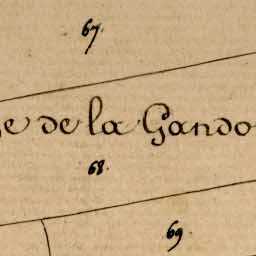 67
e de la Gando
68
69